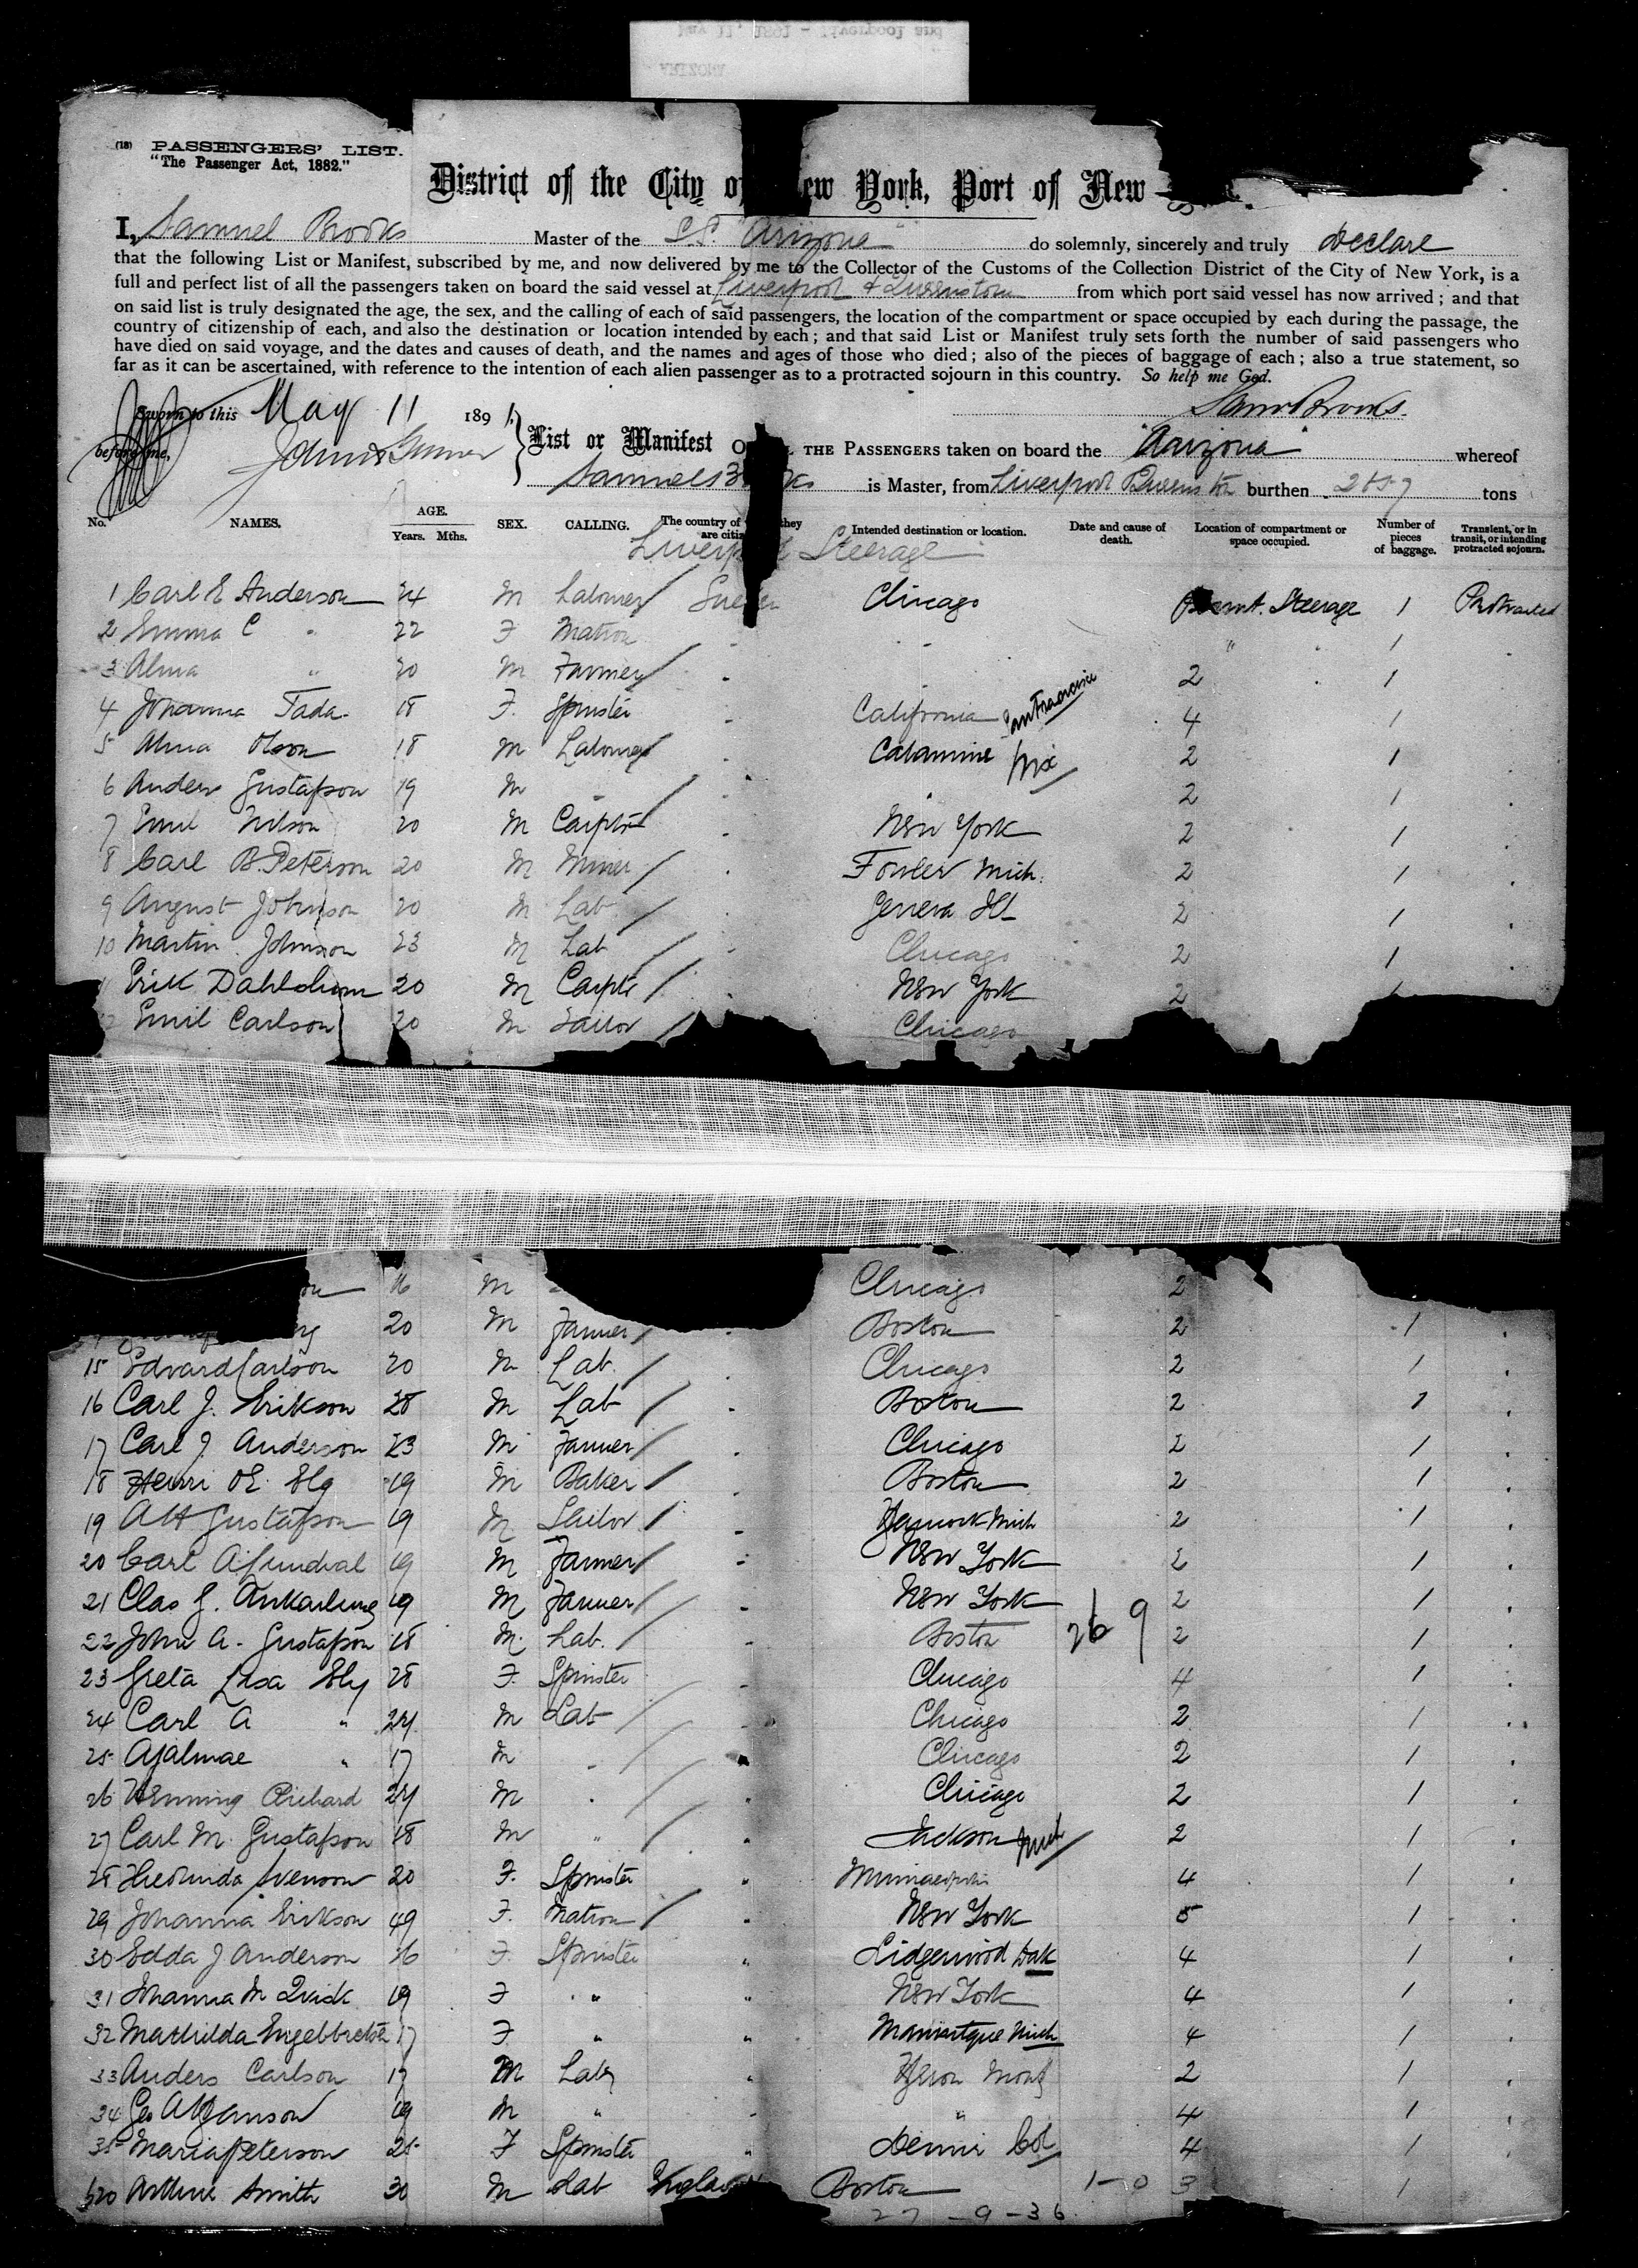 May 11, 1891 - Liverpool and
ARIZONA
(18) PASSENGERS' LIST.
"The Passenger Act, 1882."
District of the City of New York, Port of New
I, Samuel Brooks Master of the S.S. "Arizona" do solemnly, sincerely and truly declare
that the following List or Manifest, subscribed by me, and now delivered by me to the Collector of the Customs of the Collection District of the City of New York, is a
full and perfect list of all the passengers taken on board the said vessel at Liverpool & Queenstown from which port said vessel has now arrived; and that
on said list is truly designated the age, the sex, and the calling of each of said passengers, the location of the compartment or space occupied by each during the passage, the
country of citizenship of each, and also the destination or location intended by each; and that said List or Manifest truly sets forth the number of said passengers who
have died on said voyage, and the dates and causes of death, and the names and ages of those who died; also of the pieces of baggage of each; also a true statement, so
far as it can be ascertained, with reference to the intention of each alien passenger as to a protracted sojourn in this country. So help me God.
Sworn to this May 11 1891. Saml Brooks.
before me,
List or Manifest OF THE PASSENGERS taken on board the "Arizona" whereof
Samuel Brooks is Master, from Liverpool burthen tons
No. NAMES. AGE. Years. Mths. SEX. CALLING. The country of they are citiz Intended destination or location. Date and cause of death. Location of compartment or space occupied. Number of pieces of baggage. Transient, or in transit, or intending protracted sojourn.
Liverpool Steerage
1 Carl E Anderson 24 M Labourer Sweden Chicago Steerage 1 Protracted
2 Emma C " 22 F Matron " " 1
3 Alma " 20 M Farmer 2 1
4 Johanna 18 F. Spinster California San Francisco 4 1
5 Alma Olson 18 M Labourer Calamine 2 1
6 Anders Gustafson 19 M " 2 1
7 Emil Nilson 20 M Carptr New York 2 1
8 Carl B. Peterson 20 M Miner Fowler Mich. 2 1
9 August Johnson 20 M Lab Geneva Ill 2 1
10 Martin Johnson 23 M Lab Chicago 2 1
Erik 20 M Carptr New York 2
Emil Carlson 20 M Sailor Chicago
16 M Chicago 2
20 M Farmer Boston 2 1
15 Edvard Carlson 20 M Lab. Chicago 2 1
16 Carl J. Erikson 28 M Lab Boston 2 1
17 Carl J. Anderson 23 M Farmer Chicago 2 1
18 Henri O.E. Elg 19 M Baker Boston 2 1
19 A H Gustafson 19 M Sailor Hancock Mich 2 1
20 Carl A 19 M Farmer New York 2 1
21 Clas G. Ankarling 19 M Farmer New York 2 1
22 John A. Gustafson 18 M. Lab. Boston 26 9 2 1
23 Greta Lisa Elg 28 F. Spinster Chicago 4 1
24 Carl A " 24 M Lab Chicago 2 1
25 " 17 M " Chicago 2 1
26 Henning Richard 24 M " Chicago 2 1
27 Carl M. Gustafson 18 M " Jackson Mich 2 1
28 Svenson 20 F. Spinster Minneapolis 4 1
29 Johanna Erikson 49 F. Matron New York 5 1
30 Edda J Anderson 16 F. Spinster " Lidgerwood Dak 4 1
31 Johanna M Quick 19 F " " New York 4 1
32 Mathilda 17 F " " Manistique Mich 4 1
33 Anders Carlson 17 M Labr " 2 1
34 19 M " " 4 1
35 Maria Peterson 25 F Spinster " Col 4 1
Arthur Smith 30 M Lab England Boston 1-0 3 1
27 - 9 - 36